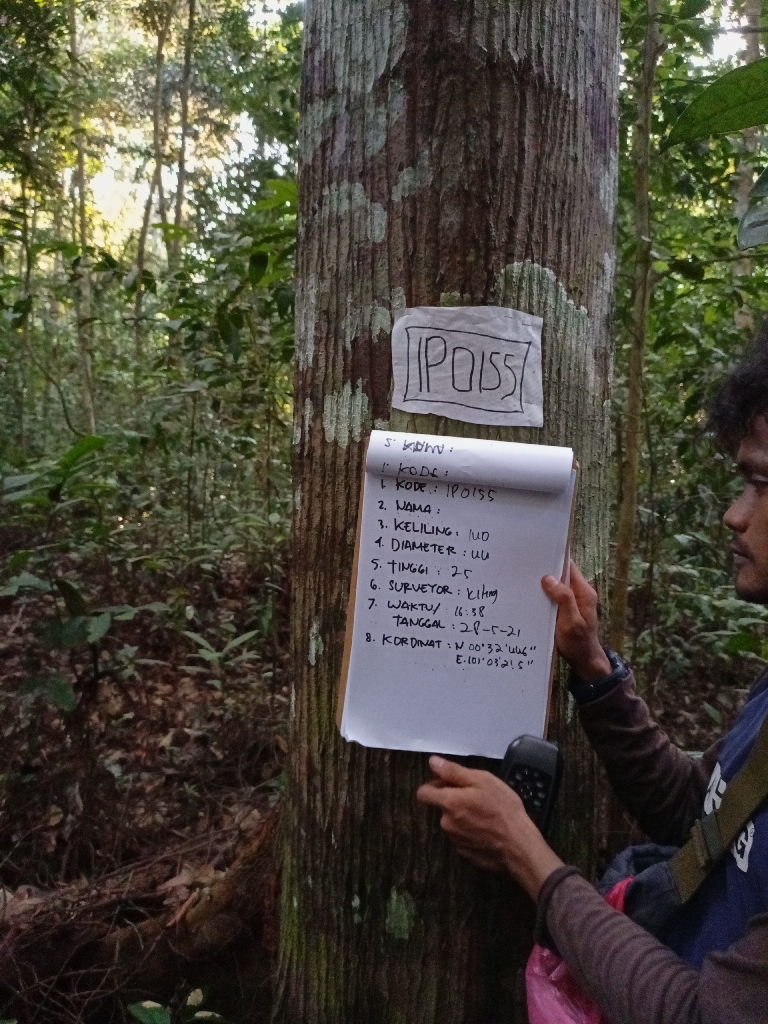 IP0155
1. KODE :
1. KODE : IP0155
2. NAMA :
3. KELILING : 140
4. DIAMETER : 44
5. TINGGI : 25
6. SURVEYOR : Kiting
7. WAKTU/ : 16:38
TANGGAL : 28-5-21
8. KORDINAT : N 00°32'44,6"
E.101°03'21,5"